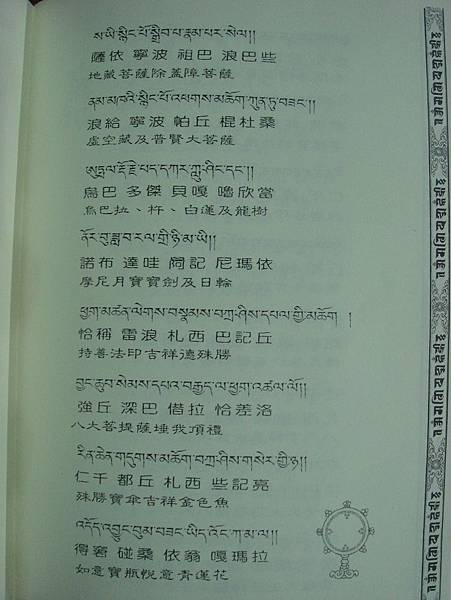 ས་ཡི་སྙིང་པོ་སྒྲིབ་པ་རྣམ་པར་སེལ།།
薩依 寧波 祖巴 浪巴些
地藏菩薩除蓋障菩薩
ནམ་མཁའི་སྙིང་པོ་འཕགས་མཆོག་ཀུན་ཏུ་བཟང་།།
浪給 寧波 帕丘 棍杜桑
虛空藏及普賢大菩薩
ཨུཏྤལ་རྡོ་རྗེ་པད་དཀར་ཀླུ་ཤིང་དང་།།
烏巴 多傑 貝嘎 嚕欣當
烏巴拉、杵、白蓮及龍樹
ནོར་བུ་ཟླ་བ་རལ་གྲི་ཉི་མ་ཡི།།
諾布 達哇 記 尼瑪依
摩尼月寶寶劍及日輪
ཕྱག་མཚན་ལེགས་བསྣམས་བཀྲ་ཤིས་དཔལ་གྱི་མཆོག །
恰稱 雷浪 札西 巴記丘
持善法印吉祥德殊勝
བྱང་ཆུབ་སེམས་དཔའ་བརྒྱད་ལ་ཕྱག་འཚལ་ལོ།།
強丘 深巴 借拉 恰差洛
八大菩提薩埵我頂禮
རིན་ཆེན་གདུགས་མཆོག་བཀྲ་ཤིས་གསེར་གྱི་ཉ།།
仁千 都丘 札西 些記亮
殊勝寶傘吉祥金色魚
འདོད་འབྱུང་བུམ་བཟང་ཡིད་འོང་ཀ་མ་ལ།།
得窘 碰桑 依翁 嘎瑪拉
如意寶瓶悅意青蓮花